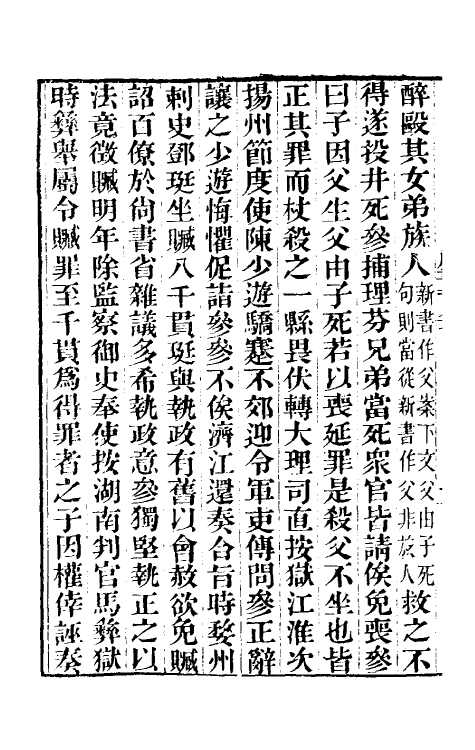 醉毆其女弟族人新書作父案下文父由子死句則當從新書作父非族人救之不
得遂投井死參捕理芬兄弟當死衆官皆請俟免喪參
曰子因父生父由子死若以喪延罪是殺父不坐也皆
正其罪而杖殺之一縣畏伏轉大理司直按獄江淮次
揚州節度使陳少遊驕蹇不郊迎令軍吏傳問參正辭
讓之少遊悔懼促詣參參不俟濟江還奏合旨時婺州
刺史鄧珽坐贓八千貫珽與執政有舊以會赦欲免贓
詔百僚於尚書省雜議多希執政意參獨堅執正之以
法竟徵贓明年除監察御史奉使按湖南判官馬彝獄
時彝舉屬令贓罪至千貫爲得罪者之子因權倖誣奏